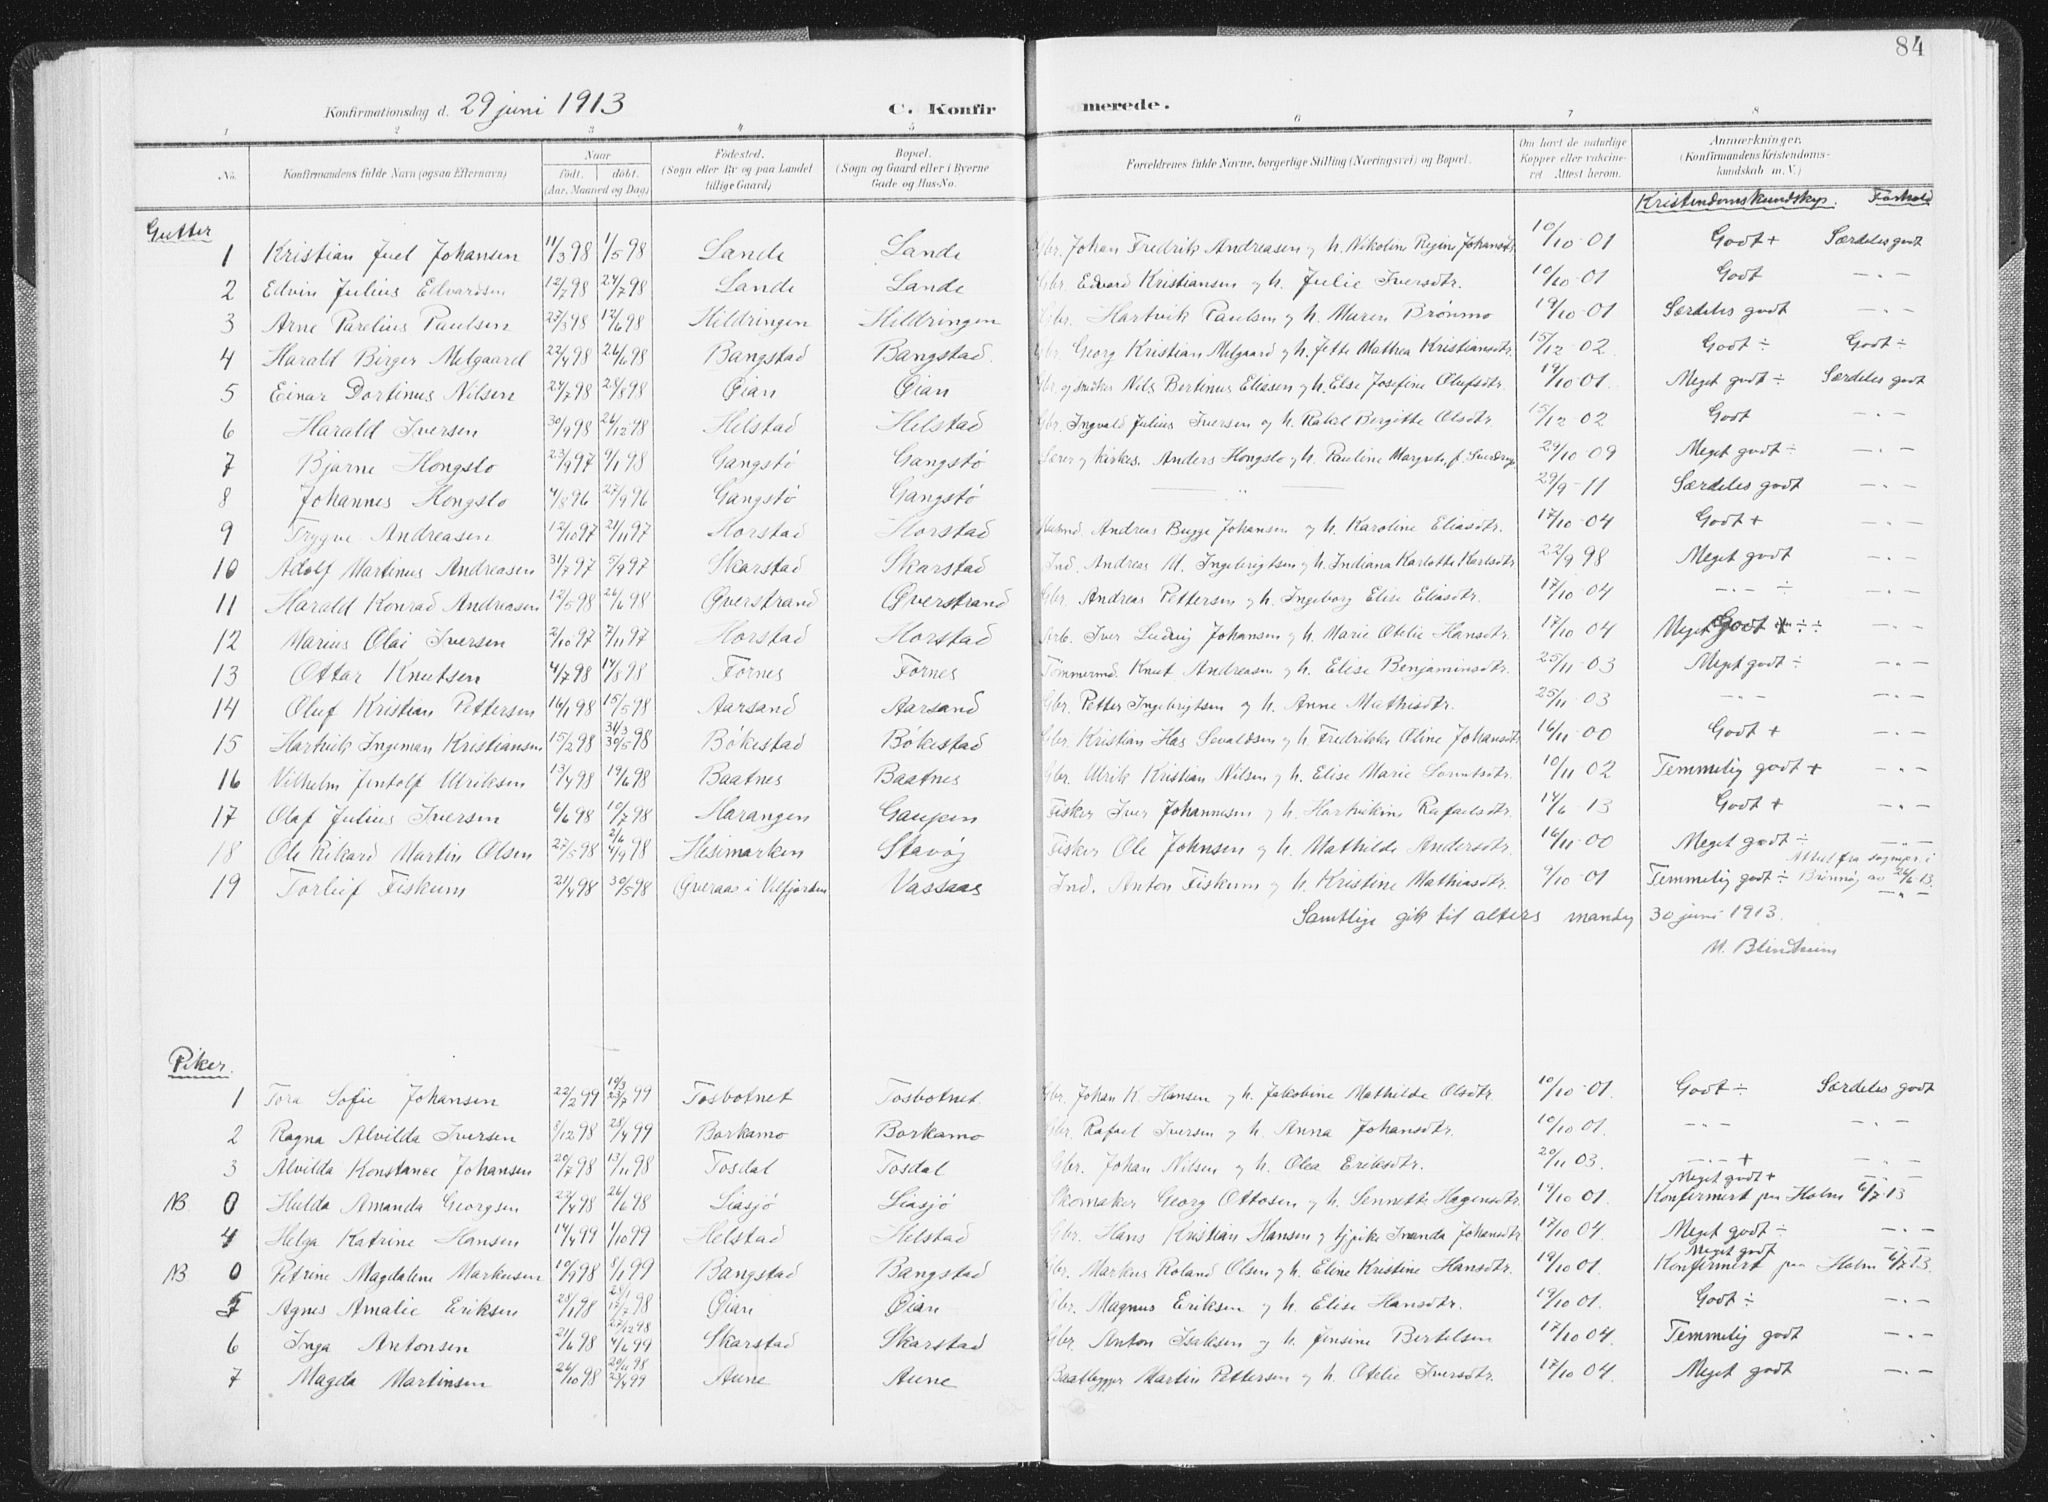 84
Konfirmationsdag d. 29 juni 1913 C. Konfirmerede.
1 2 3 4 5 6 7 8
No. Konfirmandens fulde Navn (ogsaa Efternavn) Naar født. døbt. (Aar, Maaned og Dag) Fødested. (Sogn eller By og paa Landet tillige Gaard) Bopæl. (Sogn og Gaard eller i Byerne Gade og Hus-No. Forældrenes fulde Navne, borgerlige Stilling (Næringsvei) og Bopæl. Om havt de naturlige Kopper eller vakcineret Attest herom. Anmærkninger. (Konfirmandens Kristendomskundskab m. V.)
Kristendomskundskap. Forhold
Gutter
1 Kristian Juel Johansen 11/3 98 1/5 98 Lande Lande Gbr. Johan Fredrik Andreasen og h. Nikoline Regine Johansdtr. 10/10-01 Godt + Særdeles godt
2 Edvin Julius Edvardsen 12/7 98 24/7 98 Lande Lande Gbr. Edvard Kristiansen og h. Julie Iversdtr. 10/10-01 Godt -"-
3 Arne Parelius Paulsen 23/3 98 12/6 98 Hildringen Hildringen Gbr. Hartvik Paulsen og h. Maren Brønmo 19/10-01 Særdeles godt -"-
4 Harald Birger Melgaard 22/4 98 26/6 98 Bangstad Bangstad. Gbr. Georg Kristian Melgaard og h. Jette Mathea Kristiansdtr. 15/12-02 Godt ÷ Godt ÷
5 Einar Dortinus Nilsen 24/7 98 28/8 98 Øian Øian Gbr. og snedker Nils Bertinus Eliasen og h. Else Josefine Olufsdtr. 14/10-01. Meget godt ÷ Særdeles godt
6 Harald Iversen 30/9 98 26/12 98 Helstad Helstad Gbr. Ingvald Julius Iversen og h. Rakel Bergitte Olsdtr. 15/12-02 Godt -"-
7 Bjarne Hongslo 23/9 97 4/1 98 Gangstø Gangstø Lærer og kirkes. Anders Hongslo og h. Pauline Margrete, f. Sverdrup 29/10 09 Meget godt ÷ -"-
8 Johannes Hongslo 4/8 96 27/9 96 Gangstø Gangstø -"- 29/9-11 Særdeles godt -"-
9 Trygve Andreasen 12/10 97 21/11 97 Horstad Horstad Husmd. Andreas Bugge Johansen og h. Karoline Eliasdtr. 17/10-04 Godt + -"-
10 Adolf Martinus Andreasen 31/7 97 5/9 97 Skarstad Skarstad Ind. Andreas M. Ingebrigtsen og h. Indiana Karlotte Karlsdtr. 22/9 98 Meget godt -"-
11 Harald Konrad Andreasen 12/5 98 26/6 98 Øverstrand Øverstrand Gbr. Andreas Pettersen og h. Ingeborg Elise Eliasdtr. 17/10 04 -"- ÷ -"-
12 Marius Olai Iversen 2/10 97 7/11 97 Horstad Horstad Arb. Iver Ludvig Johansen og h. Marie Otelie Hansdtr. 17/10 04 Meget Godt + -"-
13 Ottar Knutsen 4/7 98 14/8 98 Fornes Fornes Tømmermd. Knut Andreasen og h. Elise Benjaminsdtr. 25/11-03 Meget godt ÷ -"-
14 Oluf Kristian Pettersen 16/1 98 15/5 98 Aarsand Aarsand Gbr. Petter Ingebrigtsen og h. Anne Mathisdtr. 25/11-03 -"- -"-
15 Hartvik Ingeman Kristiansen 15/2 98 31/3 30/5 98 Bøkestad Bøkestad Gbr. Kristian Has Sevaldsen og h. Fredrikke Oline Johansdtr 16/11-00 Godt + -"-
16 Vilhelm Jentolf Ulriksen 13/4 98 19/6 98 Baatnes Baatnes Gbr. Ulrik Kristian Nilsen og h. Elise Marie 10/11 02 Temmelig godt + -"-
17 Olaf Julius Iversen 6/6 98 10/7 98 Harangen Gaupen Fisker Iver Johannesen og h. Hartvikine Rafaelsdtr. 14/6-13 Godt + -"-
18 Ole Rikard Martin Olsen 27/5 98 2/6 4/9 98 Heimarken Stavøj Fisker Ole Johnsen og h. Mathilde Andersdtr. 16/11-00 Meget godt ÷ -"-
19 Torleif Fiskum 21/4 98 30/5 98 Øveraas i Velfjorden Vassaas Ind. Anton Fiskum og h. Kristine Mathiasdtr. 9/10-01 Temmelig godt ÷ Attest fra sognepr. i Brønnøy av 26/6 13. -"-
Samtlige gik til alters mandag 30 juni 1913.
M. Blindheim
Piker.
1 Tora Sofie Johansen 22/2 99 19/3 23/7 99 Tosbotnet Tosbotnet Gbr. Johan K. Hansen og h. Jakobine Mathilde Olsdtr. 10/10-01. Godt ÷ Særdeles godt
2 Ragna Alvilda Iversen 8/12 98 23/4 99 Borkamo Borkamo Gbr. Rafael Iversen og h. Anna Johansdtr. 10/10 01. -"- -"-
3 Alvilda Konstance Johansen 20/7 98 13/11 98 Tosdal Tosdal Gbr. Johan Nilsen og h. Olea Eriksdtr. 20/11 03. -"- + -"-
NB 0 Hulda Amanda Georgsen 22/4 98 26/6 98 Liasjø Liasjø Skomaker Georg Ottosen og h. Sennette Hagensdtr. 19/10 01. Meget godt + Konfermert paa Holm 6/7 13
4 Helga Katrine Hansen 14/4 99 1/10 99 Helstad Helstad Gbr. Hans Kristian Hansen og Gjerike Iranda Johansdtr 17/10 04. Meget godt ÷ -"-
NB 0 Petrine Magdalene Markusen 10/9 98 8/1 99 Bangstad Bangstad Gbr. Markus Roland Olsen og h. Eline Kristine Hansdtr. 19/10 01. Meget godt Konfermert paa Holm 6/7 13.
5 Agnes Amalie Eriksen 23/1 98 17/7 98 Øian Øian Gbr. Magnus Eriksen og h. Elise Hansdtr. 19/10 01. Godt ÷ -"-
6 Inga Antonsen 21/6 98 27/12 98 4/6 99 Skarstad Skarstad Gbr. Anton Isaksen og h. Jensine Bertelsen 17/10 04. Temmelig godt -"-
7 Magda Martinsen 26/10 98 20/11 98 23/4 99 Aune Aune Baatbygger Martin Pettersen og h. Otelie Iversdtr. 17/10 04. Meget godt -"-